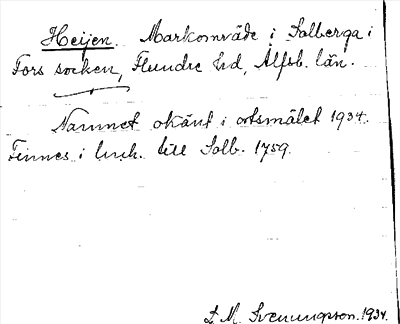 Heijen. Markområde i Solberga i
Fors socken, Flundre hd, Älfsb. län.
Namnet okänt i ortsmålet 1934.
Finnes i till Solb. 1759.
L. M. Svenungsson. 1934.